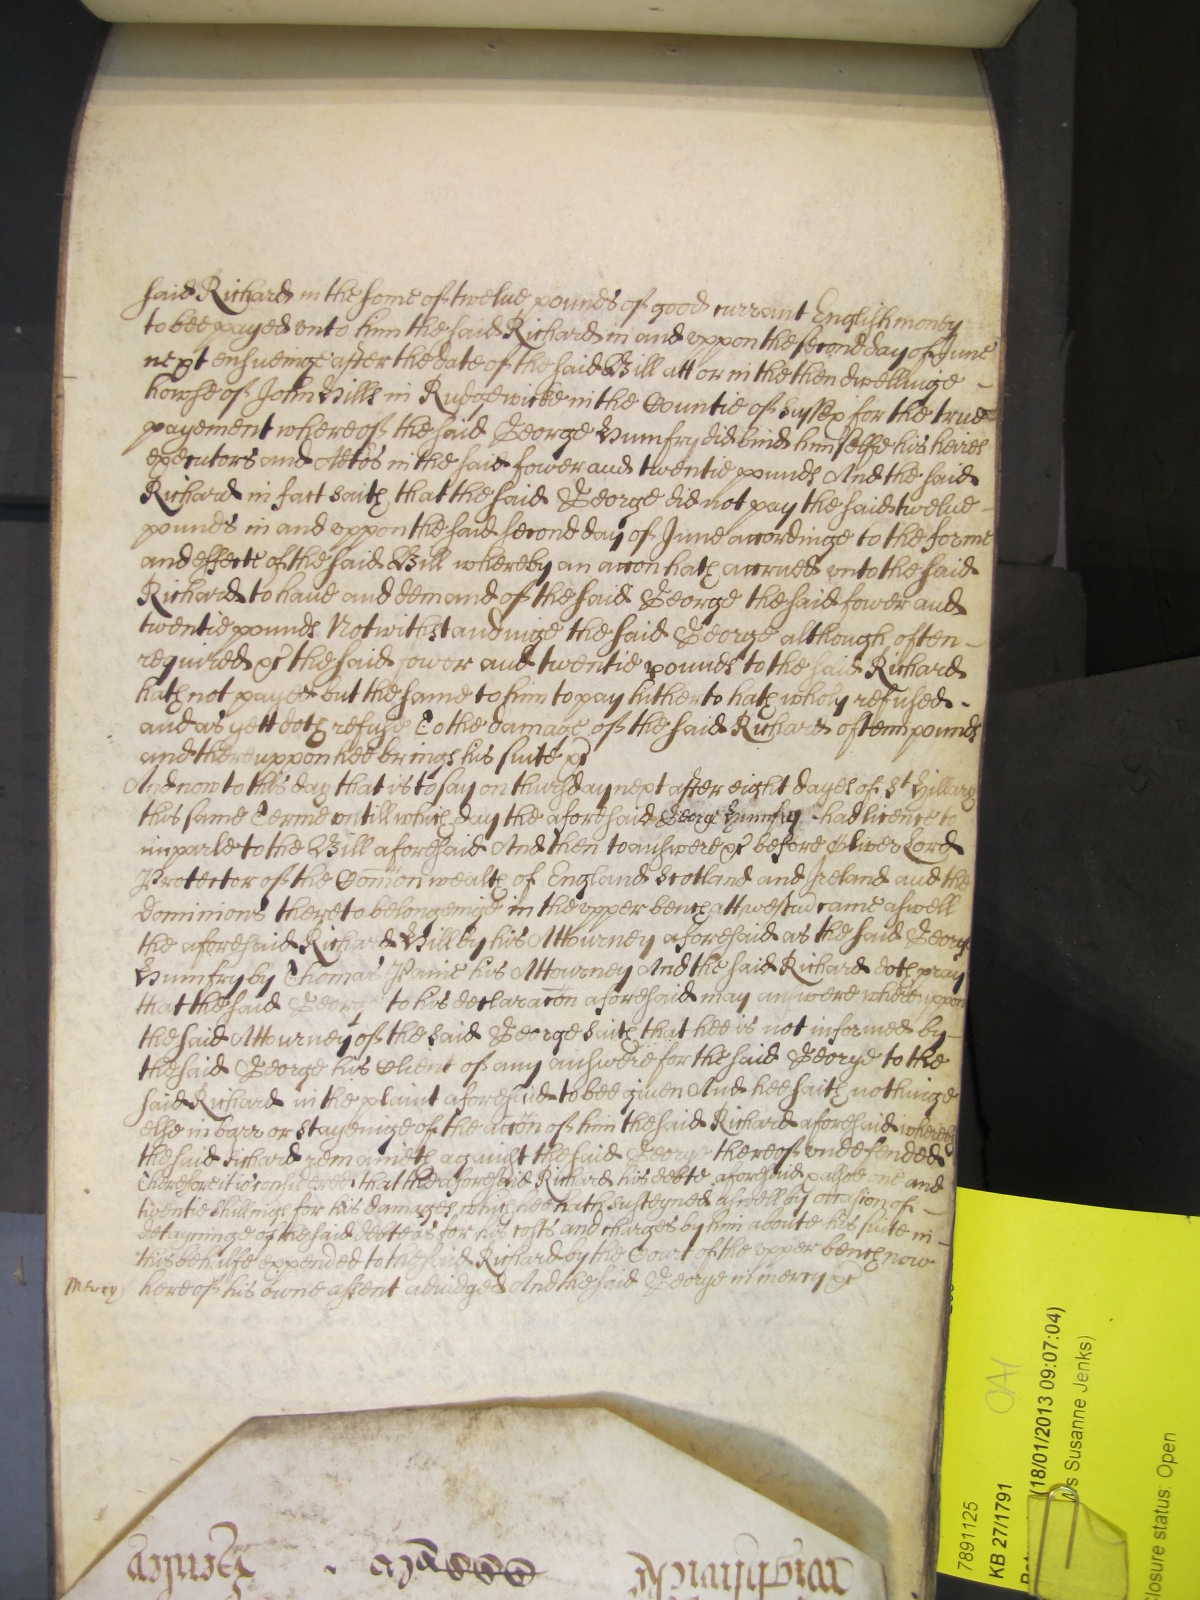 said Richard in the some of twelve pounds of good currant English money
to bee payed vnto him the said Richard in and vppon the second day of June
next ensueinge after the date of the said Bill att or in the then dwellinge
howse of John Hills in Rudgewicke in the Countie of Sussex for the true
payement whereof the said George Humfry did bind himselfe his heires
executors and Adtors in the said fower and twentie pounds And the said
Richard in fact saith that the said George did not pay the said twelue
pounds in and vppon the said second day of June accordinge to the forme
and effecte of the said Bill whereby an accon hath accrued vnto the said
Richard to haue and demand of the said George the said fower and
twentie pounds Notwithstandinge the said George although often
required &c the said fower and twentie pounds to the said Richard
hath not payed but the same to him to pay hitherto hath wholy refused
and as yett doth refuse To the damage of the said Richard of tenn pounds
and thereuppon hee brings his suite &c
And now to this day that is to say on thursday next after eight dayes of St Hillary
this same Terme vntill which day the aforesaid George Humfry had licence to
imparle to the Bill aforesaid And then to answere &c before Oliver Lord
Protector of the Common wealth of England Scotland and Ireland and the
Dominions thereto belongeinge in the vpper bench att westmr came aswell
the aforesaid Richard Hill by his Attourney aforesaid as the said George
Humfry by Thomas Paine his Attourney And the said Richard doth pray
that the said George to his declaracon aforesaid may answere wherevppon
the said Attourney of the said George saith that hee is not informed by
the said George his Client of any answere for the said George to the
said Richard in the plaint aforesaid to bee given And hee saith nothinge
else in barr or stayeinge of the accon of him the said Richard aforesaid whereby
the said Richard remaineth against the said George thereof vndefended
Therefore it is considered that the aforesaid Richard his debte aforesaid and
twentie shillings for his damages which hee hath susteyned aswell by occasion of
detayninge of the said debte as for his costs and charges by him aboute his suite in
this behalfe expended to the said Richard by the Court of the vpper bench now
Mercy here of his owne assent adiudged And the said George in mercy &c
7891125
KB 27/1791
(18/01/2013 09:07:04)
Susanne Jenks)
closure status: Open